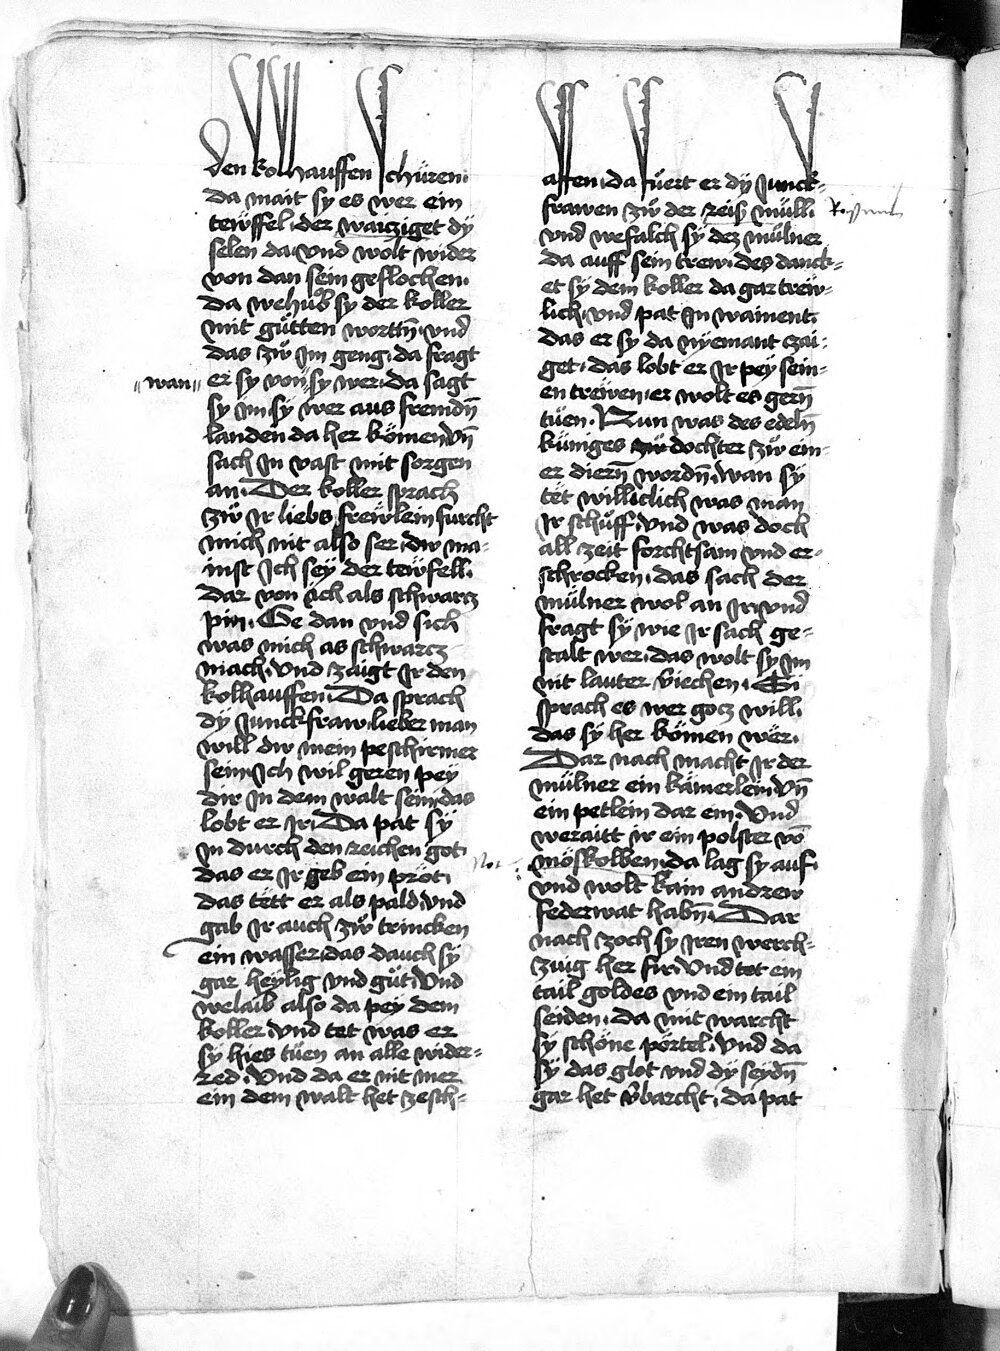 den kolhauffen schüren.
da mait sy es wer ein
tewffel der waicziget dÿ
selen da vnd wolt wider
von dan sein geflochen.
da wehub sy der koller
mit gütten worttn̄ vnd
das zw̋ Im geng. da fragt
"wan" er sy von sy wer. da sagt
sy im sÿ wer aus fremdn̄
landen da her kömen vn̄
sach In vast mit sorgen
an. Der koller sprach
zw̋ Ir liebs frewlein furcht
mich nit also ser. dw ma-
inst Ich sey der tewfell.
dar von ich als schwarcz
pin. Ge dan vnd sich
was mich as schwarcz
mach. vnd zaigt Ir den
kolhauffen. Da sprach
dÿ Junckfraw lieber man
will dw mein peschirmer
sein. Ich wil geren pey
dir In dem walt sein. das
lobt er Ir. Da pat sÿ
in durch den reichen got.
das er Ir geb ein prot.
das tett er als pald. vnd
gab Ir auch zw̋ trincken
ein wasser. das dauch sÿ
gar heylig vnd güt. Vnd
welaib also da pey dem
koller. vnd tet was er
sÿ hies tüen an alle wider=
red. Vnd da er nit mer
ein dem walt het zesch=
affen. da füert er dÿ Junck=
frawen zw̋ der reismüll.
vnd wefalch sÿ dez mülner
da auff sein trew. des danck=
et sÿ dem koller da gar trew=
lich. vnd pat In wainent.
das er sÿ da nÿemant czai=
get. das lobt er Ir pey sein=
en trewen. er wolt es gern̄
tüen. Nun was des edeln̄
küniges dochter zw̋ ein=
er diern̄ wordn̄. wan sÿ
tet williclich was man
Ir schüff. vnd was doch
all zeit forchtsam vnd er=
schrocken. das sach der
mülner wol an Ir. vnd
fragt sÿ wie Ir sach ge=
stalt wer. das wolt sy im
nit lauter viechen. Si
sprach es wer gotz will.
das sÿ her kömen wër.
Dar nach macht Ir der
mülner ein kämerlein. vn̄
ein petlein dar ein. Vnd
weraitt ir ein polster vō
möskolben. da lag sy auf.
vnd wolt kain andrew
federwat habn̄. Dar
nach zoch sy iren werch=
zuig her fir. Vnd tet ein
tail goldes vnd ein tail
seiden. da mit warcht
sÿ schöne pörtel. Vnd da
sÿ das glot vnd dÿ seydn̄
gar het v̈barcht. da pat